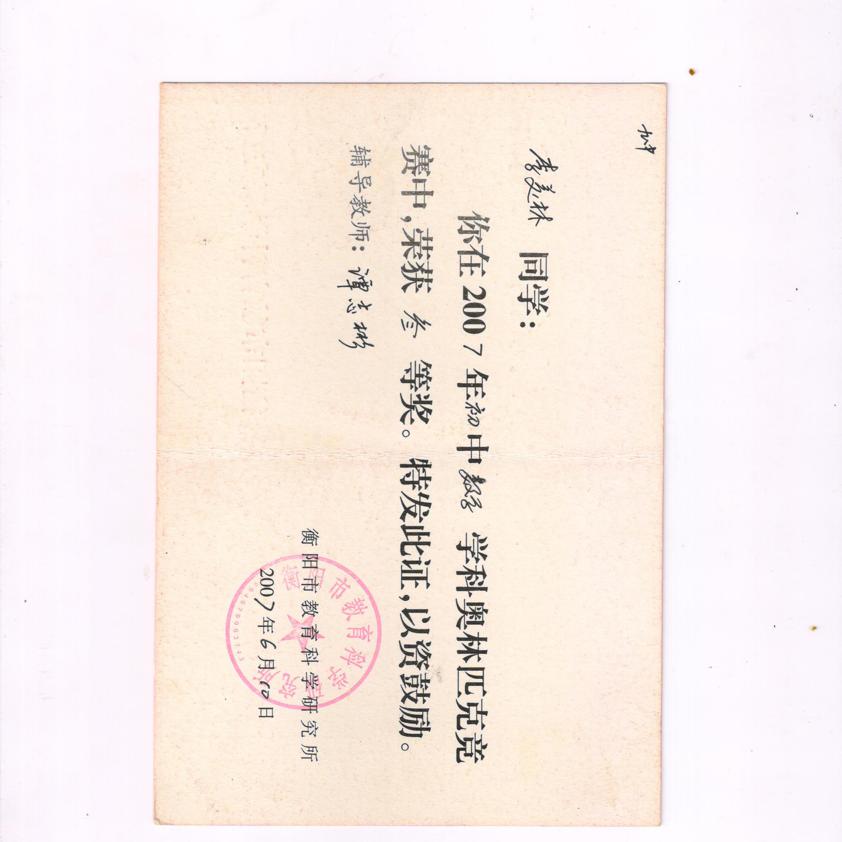 九中
李美林 同学：
你在 2007 年初中数学 学科奥林匹克竞
赛中，荣获 叁 等奖。特发此证，以资鼓励。
辅导教师：谭志彬
衡阳市教育科学研究所
2007年6月10日
衡阳市教育科学研究所